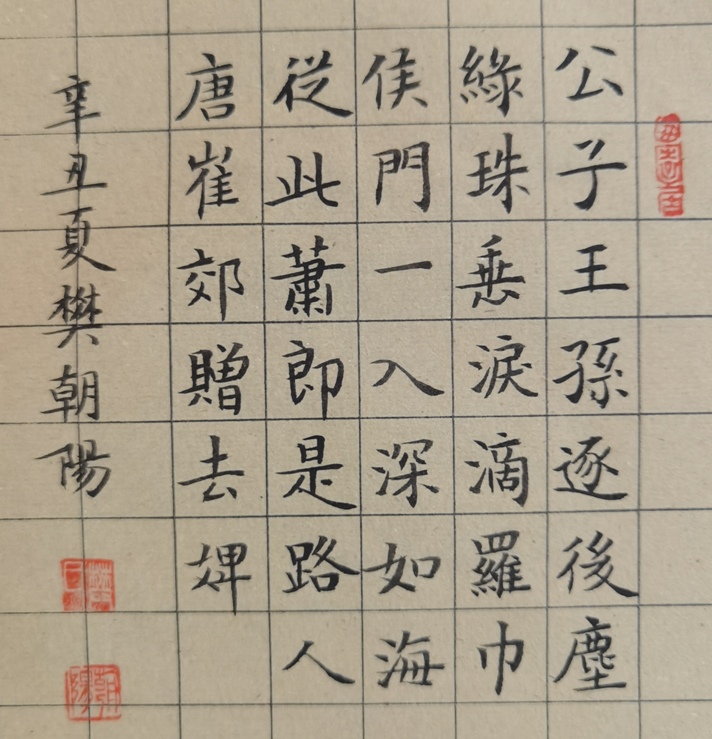 公子王孫逐後塵
綠珠垂淚滴羅巾
侯門一入深如海
從此蕭郎是路人
唐崔郊贈去婢
辛丑夏樊朝陽
朝陽